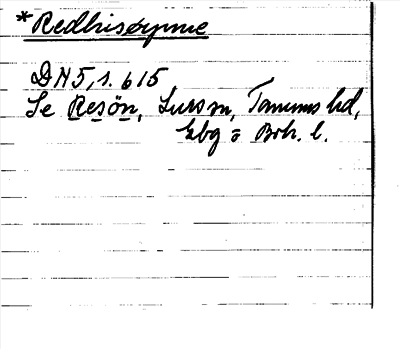 *Redhisøynne
DN 5, s. 615
Se Resön, Lurs sn, Tanums hd,
Gbg o Boh. l.